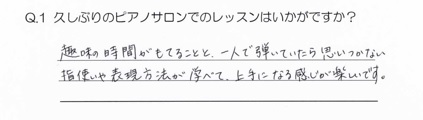 Q.1 久しぶりのピアノサロンでのレッスンはいかがですか？
趣味の時間がもてることと、一人で弾いていたら思いつかない
指使いや表現方法が学べて、上手になる感じが楽しいです。